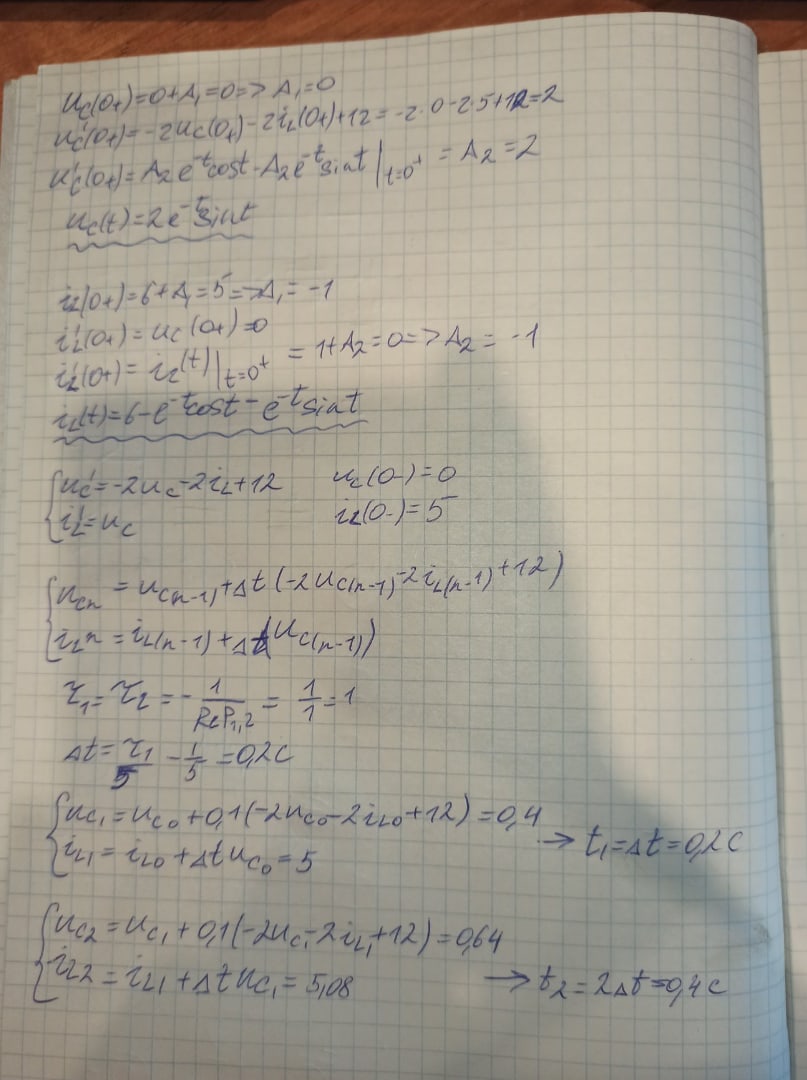 u_C(0+)=0+A₁=0=>A₁=0
u'_C(0+)=-2u_C(0+)-2i_L(0+)+12=-2·0-2·5+12=2
u'_C(0+)=A₂e^{-t}cost-A₂e^{-t}sint|_{t=0⁺}=A₂=2
u_C(t)=2e^{-t}sint
i_L(0+)=6+A₁=5=>A₁=-1
i'_L(0+)=u_C(0+)=0
i'_L(0+)=i_L(t)|_{t=0⁺}=1+A₂=0=>A₂=-1
i_L(t)=6-e^{-t}cost-e^{-t}sint
{u'_C=-2u_C-2i_L+12 u_C(0-)=0
i'_L=u_C i_L(0-)=5
{u_{Cn}=u_{C(n-1)}+Δt(-2u_{C(n-1)}-2i_{L(n-1)}+12)
i_{Ln}=i_{L(n-1)}+Δt(u_{C(n-1)})
τ₁=τ₂=-1/ReP₁,₂=1/1=1
Δt=τ₁/5-1/5=0,2c
{u_{C1}=u_{C0}+0,1(-2u_{C0}-2i_{L0}+12)=0,4
i_{L1}=i_{L0}+Δtu_{C0}=5 → t₁=Δt=0,2c
{u_{C2}=u_{C1}+0,1(-2u_{C1}-2i_{L1}+12)=0,64
i_{L2}=i_{L1}+Δtu_{C1}=5,08 → t₂=2Δt=0,4c